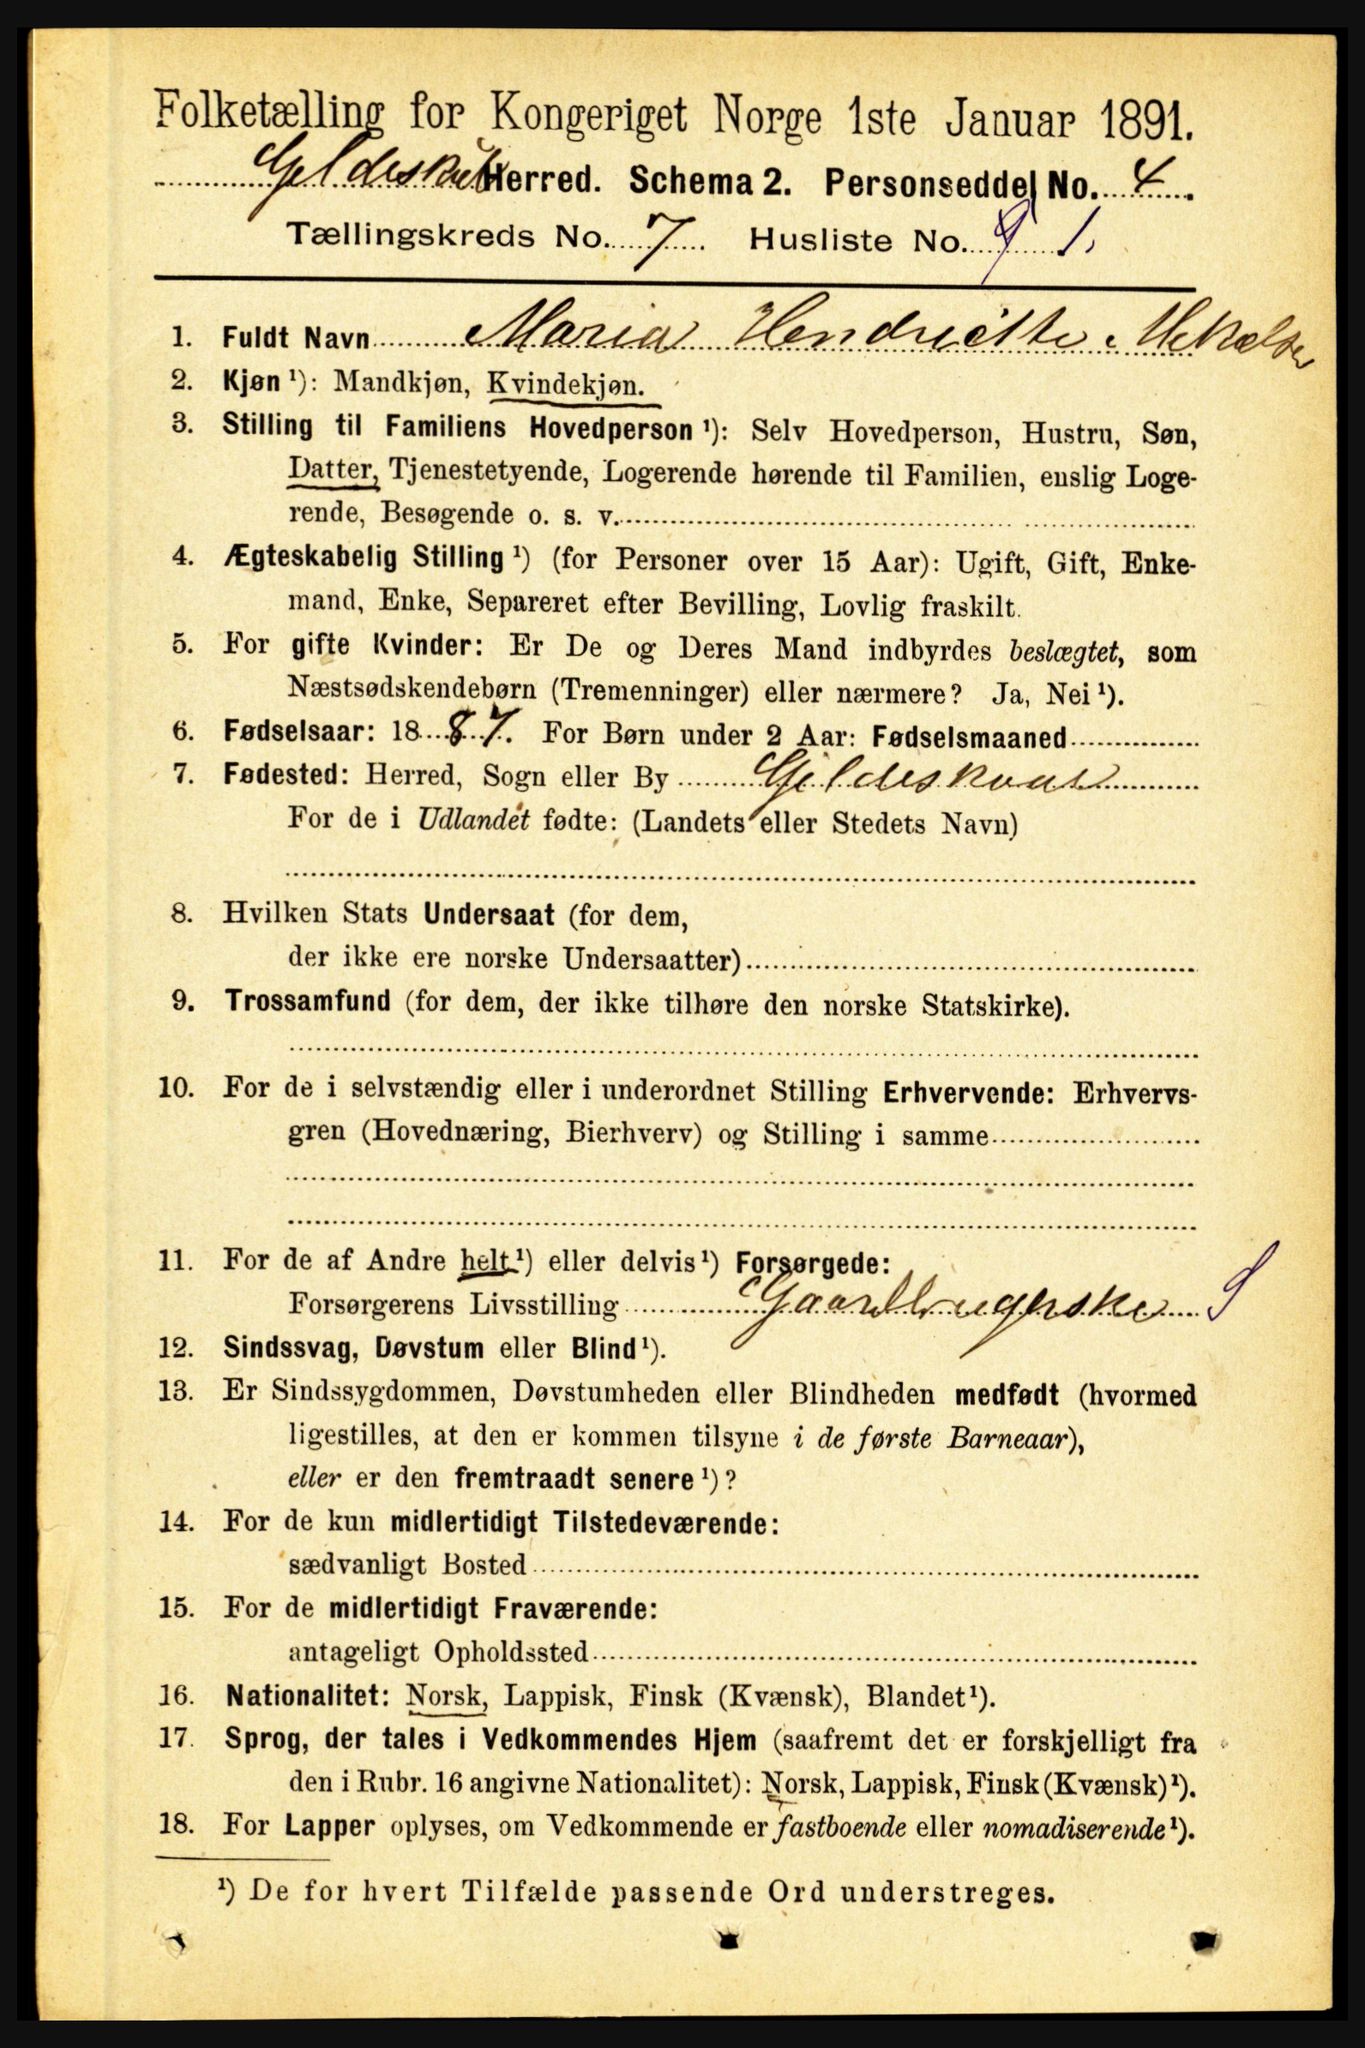 Folketælling for Kongeriget Norge 1ste Januar 1891.
Herred. Schema 2. Personseddel No. 4.
Tællingskreds No. 7 Husliste No. 9 1.
1. Fuldt Navn Maria Hendriette Mekalsen
2. Kjøn ¹): Mandkjøn, Kvindekjøn.
3. Stilling til Familiens Hovedperson ¹): Selv Hovedperson, Hustru, Søn,
Datter, Tjenestetyende, Logerende hørende til Familien, enslig Loge-
rende, Besøgende o. s. v.
4. Ægteskabelig Stilling ¹) (for Personer over 15 Aar): Ugift, Gift, Enke-
mand, Enke, Separeret efter Bevilling, Lovlig fraskilt.
5. For gifte Kvinder: Er De og Deres Mand indbyrdes beslægtet, som
Næstsødskendebørn (Tremenninger) eller nærmere? Ja, Nei ¹).
6. Fødselsaar: 1887. For Børn under 2 Aar: Fødselsmaaned
7. Fødested: Herred, Sogn eller By Gildeskaal
For de i Udlandet fødte: (Landets eller Stedets Navn)
8. Hvilken Stats Undersaat (for dem,
der ikke ere norske Undersaatter)
9. Trossamfund (for dem, der ikke tilhøre den norske Statskirke).
10. For de i selvstændig eller i underordnet Stilling Erhvervende: Erhvervs-
gren (Hovednæring, Bierhverv) og Stilling i samme
11. For de af Andre helt ¹) eller delvis ¹) Forsørgede:
Forsørgerens Livsstilling Gaardbrugerske
12. Sindssvag, Døvstum eller Blind ¹).
13. Er Sindssygdommen, Døvstumheden eller Blindheden medfødt (hvormed
ligestilles, at den er kommen tilsyne i de første Barneaar),
eller er den fremtraadt senere ¹)?
14. For de kun midlertidigt Tilstedeværende:
sædvanligt Bosted
15. For de midlertidigt Fraværende:
antageligt Opholdssted
16. Nationalitet: Norsk, Lappisk, Finsk (Kvænsk), Blandet ¹).
17. Sprog, der tales i Vedkommendes Hjem (saafremt det er forskjelligt fra
den i Rubr. 16 angivne Nationalitet): Norsk, Lappisk, Finsk (Kvænsk) ¹).
18. For Lapper oplyses, om Vedkommende er fastboende eller nomadiserende ¹).
¹) De for hvert Tilfælde passende Ord understreges.